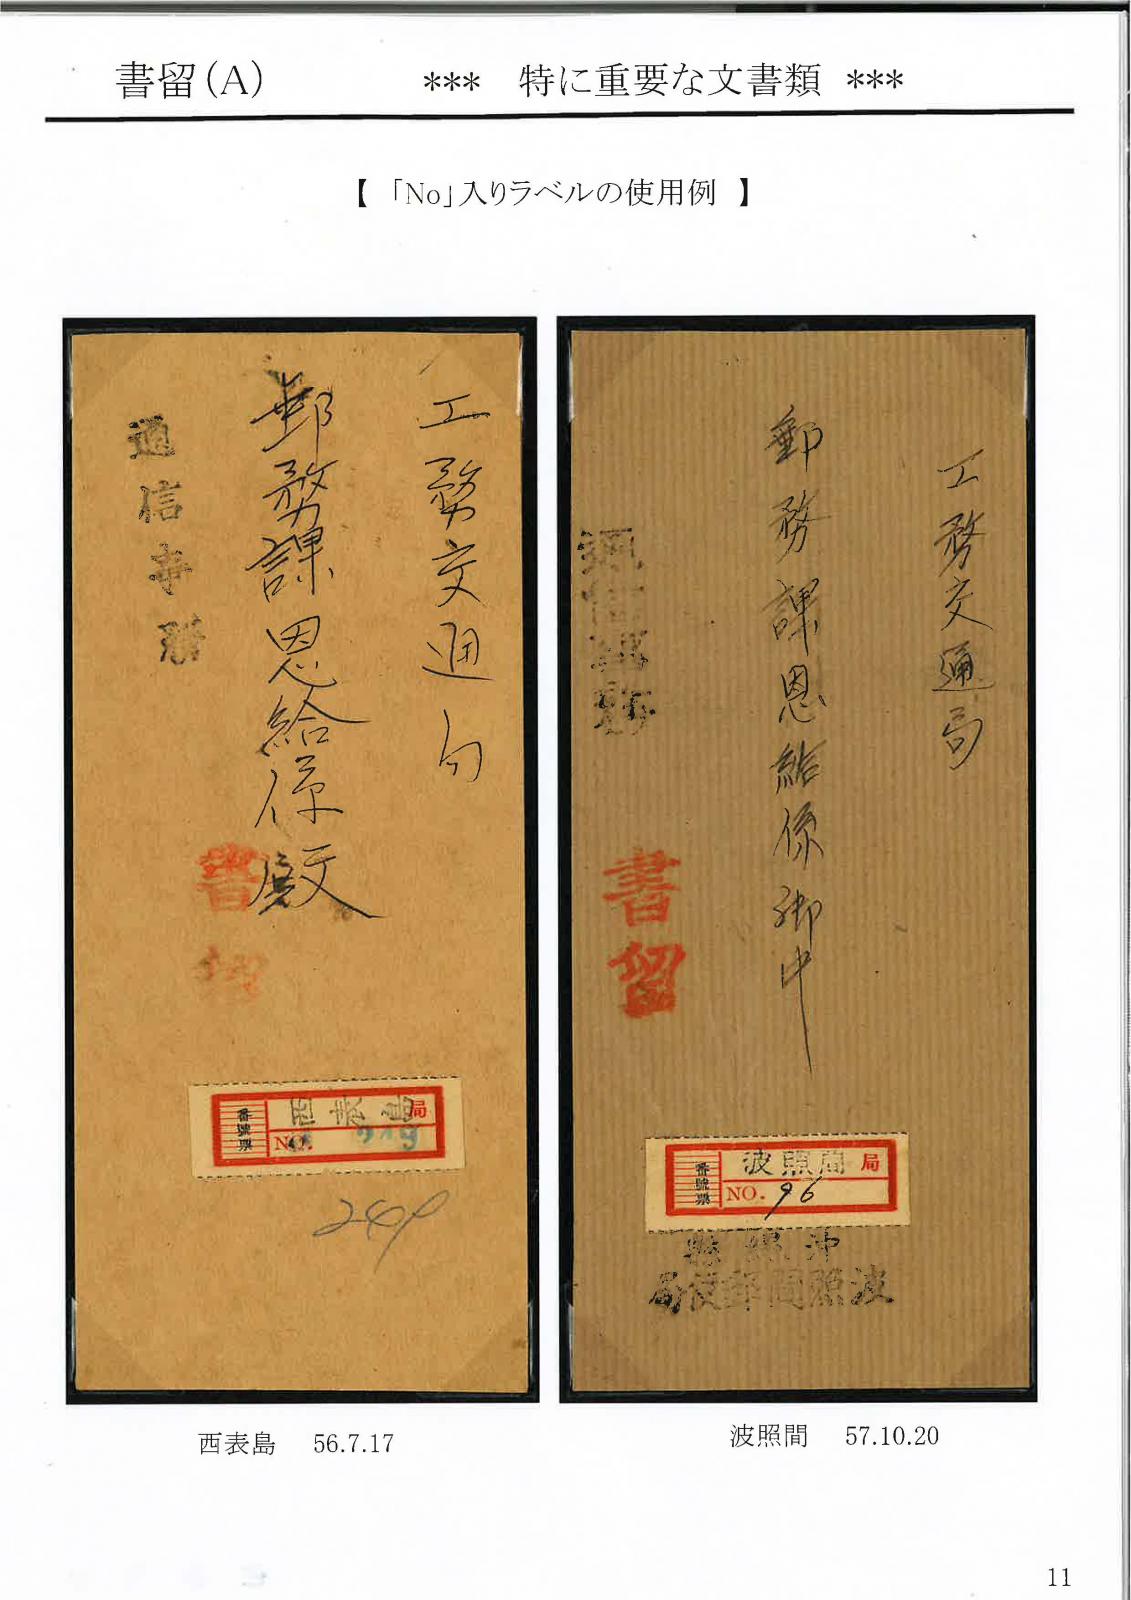 書留(A)
*** 特に重要な文書類 ***
【 「No」入りラベルの使用例 】
工務交通局
郵務課恩給係殿
通信事務
書留
番號票
西表島局
NO. 249
249
工務交通局
郵務課恩給係御中
通信事務
書留
番號票
波照間局
NO. 96
沖縄縣
波照間郵便局
西表島 56.7.17
波照間 57.10.20
11